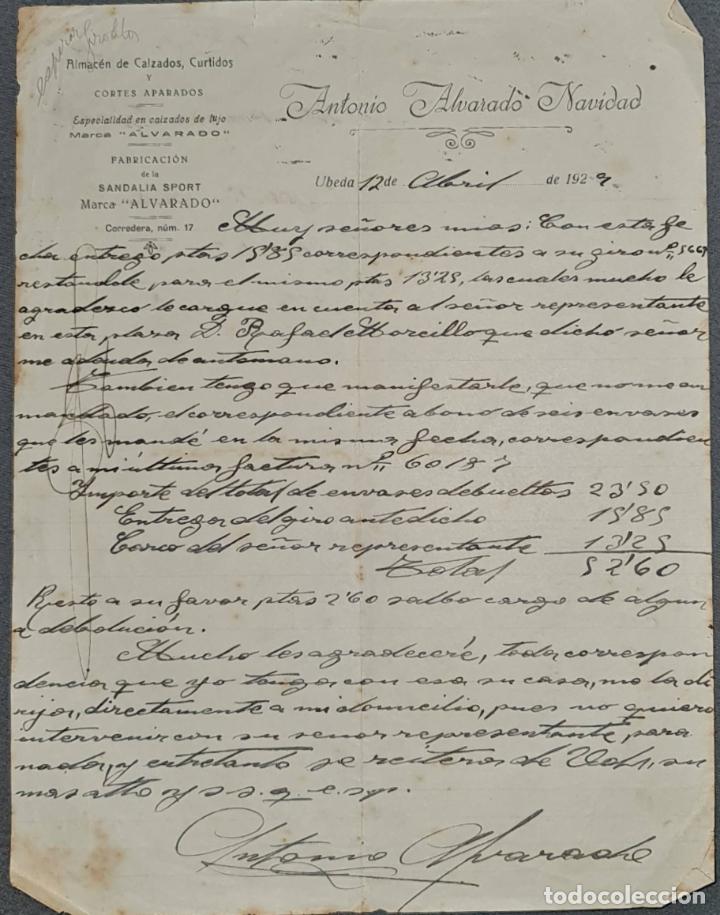 Almacén de Calzados, Curtidos
Y
CORTES APARADOS
Especialidad en calzados de lujo
Marca "ALVARADO"
FABRICACIÓN
de la
SANDALIA SPORT
Marca "ALVARADO"
Corredera, núm. 17
Antonio Alvarado Navidad
Ubeda 12 de Abril de 1929
Muy señores mios: Con esta fe
cha entrego ptas 15'85 correspondientes a su giro nº
restandole para el mismo ptas 13'25, las cuales mucho le
agradezco le cargue en cuenta al señor representante
en esta plaza D. Rafael Morcillo que dicho señor
me adeuda de antemano.
Tambien tengo que manifestarle, que no me an
mandado, el correspondiente abono de seis envases
que les mandé en la misma fecha, correspondien
tes a mi última factura nº 60187
Importe del total de envases debueltos 23'50
Entrega del giro antedicho 15'85
Cargo del señor representante 13'25
Total 52'60
Resto a su favor ptas 2'60 salbo cargo de algun
a debolución.
Mucho les agradeceré, toda correspon
dencia que yo tenga con esa su casa, me la di
rija, directamente a mi domicilio, pues no quiero
intervenir con su señor representante, para
nada, y entretanto se reitera de Vds, su
mas atto y s s. q. e. s. m.
Antonio Alvarado
todocoleccion